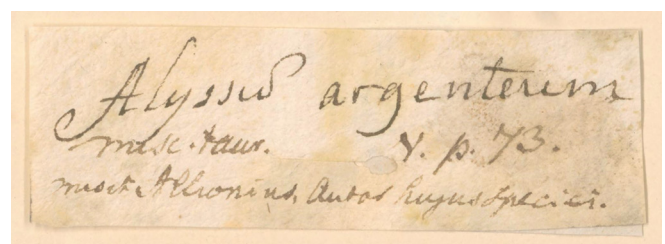 Alyssū argenteum
misc. taur. V. p. 73.
misit Allionius, Autor hujus speciei.